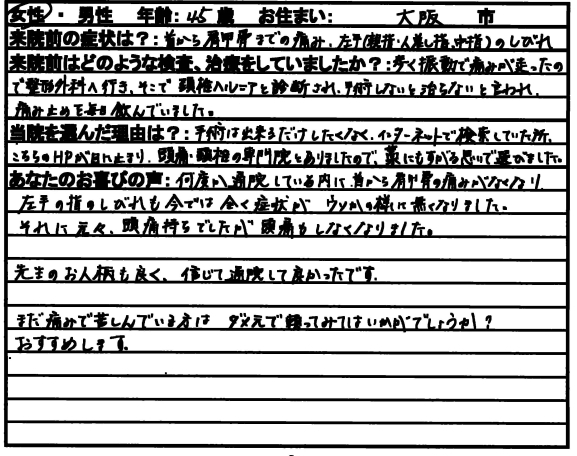 女性・男性 年齢:45歳 お住まい: 大阪 市
来院前の症状は?:首から肩甲骨までの痛み、左手(親指・人差し指、中指)のしびれ
来院前はどのような検査、治療をしていましたか?:歩く振動で痛みが走ったの
で整形外科へ行き、そこで頚椎ヘルニアと診断され、手術しないと治らないと言われ、
痛み止めを毎日飲んでいました。
当院を選んだ理由は?:手術は出来るだけしたくなく、インターネットで検索していた所、
こちらのHPが目に止まり、頭痛・頚椎の専門院とありましたので、藁にもすがる思いで選びました。
あなたのお喜びの声:何度か通院している内に首から肩甲骨の痛みがなくなり
左手の指のしびれも今では全く症状がウソかの様に無くなりました。
それに元々、頭痛持ちでしたが頭痛もしなくなりました。
先生のお人柄も良く、信じて通院して良かったです。
まだ痛みで苦しんでいる方はダメ元で頼ってみてはいかがでしょうか?
おすすめします。